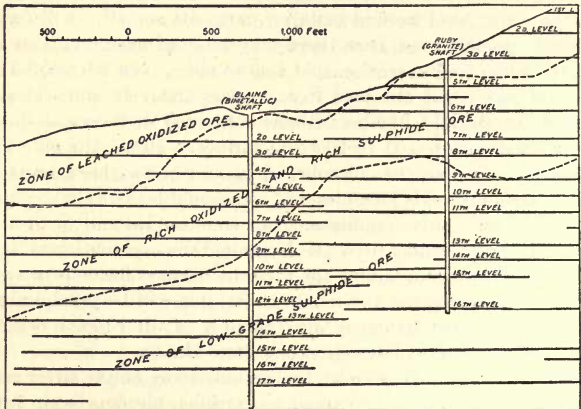 500 0 500 1000 Feet
1ST L
2D. LEVEL
RUBY
(GRANITE)
SHAFT
3D LEVEL
5TH LEVEL
6TH LEVEL
7TH LEVEL
8TH LEVEL
9TH LEVEL
10TH LEVEL
11TH LEVEL
13TH LEVEL
14TH LEVEL
15TH LEVEL
16TH LEVEL
BLAINE
(BIMETALLIC)
SHAFT
2D LEVEL
3D LEVEL
4TH
5TH LEVEL
6TH LEVEL
7TH LEVEL
8TH LEVEL
9TH LEVEL
10TH LEVEL
11TH LEVEL
12TH LEVEL
13TH LEVEL
14TH LEVEL
15TH LEVEL
16TH LEVEL
17TH LEVEL
ZONE OF LEACHED OXIDIZED ORE
ZONE OF RICH OXIDIZED AND RICH SULPHIDE ORE
ZONE OF LOW-GRADE SULPHIDE ORE